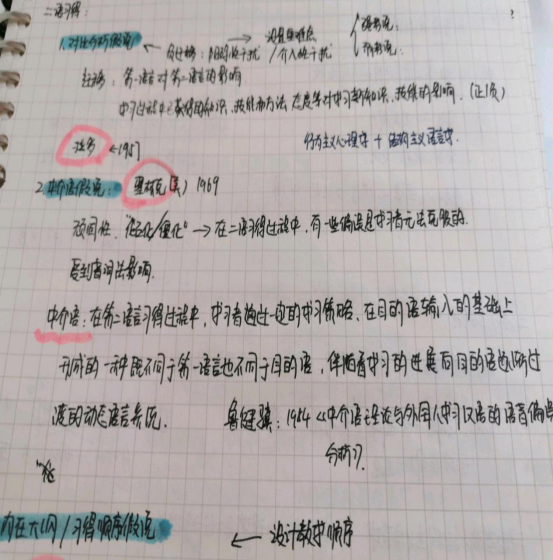 二语习得：
1.对比分析假说 ← 负迁移：阻碍性干扰/介入性干扰 → 设置重难点 { 强势说： 弱势说：
迁移：第一语言对第二语言的影响
学习过程中已获得的知识、技能和方法、态度等对学习新知识、技能的影响.（正|负）
拉多 ←1957 行为主义心理学 + 结构主义语言学.
2.中介语假说：塞林克（美）1969
顽固性."石化/僵化" → 在二语习得过程中,有一些偏误是学习者无法克服的.
受到
影响.
中介语:在第二语言习得过程中,学习者通过一定的学习策略、在目的语输入的基础上
形成的一种既不同于第一语言也不同于目的语,伴随着学习的进展向目的语逐渐过
渡的动态语言系统. 鲁健骥：1984《中介语理论与外国人学习汉语的语音偏误
分析》.
内在大纲/习得顺序假说 ← 设计教学顺序